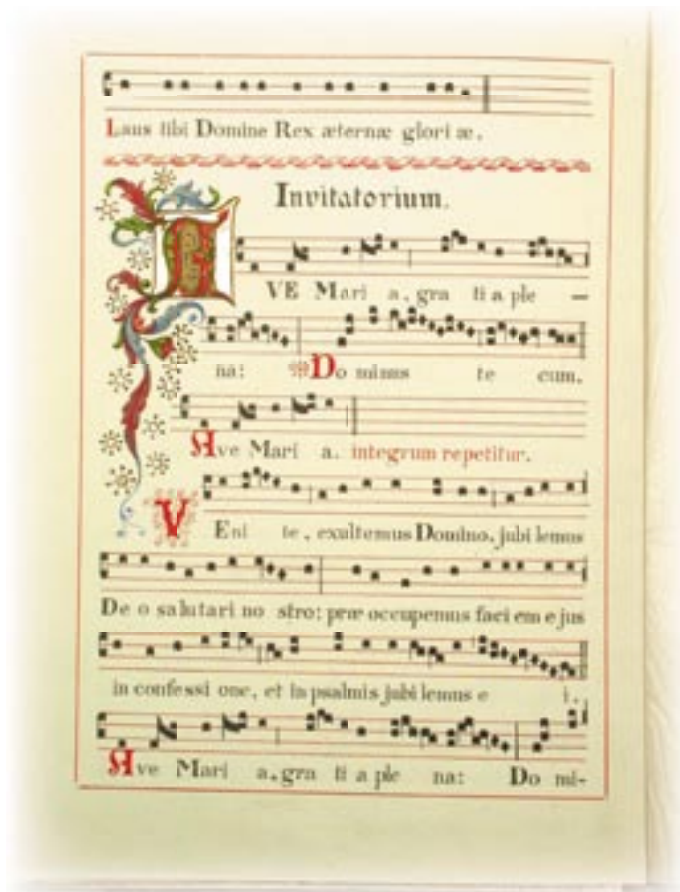 Laus tibi Domine Rex æternæ glori æ.
Invitatorium.
AVE Mari a, gra ti a ple –
na: Do minus te cum.
Ave Mari a. integrum repetitur.
VEni te, exultemus Domino, jubi lemus
De o salutari no stro: præ occupemus faci em ejus
in confessi one, et in psalmis jubi lemus e i.
Ave Mari a, gra ti a ple na: Do mi-